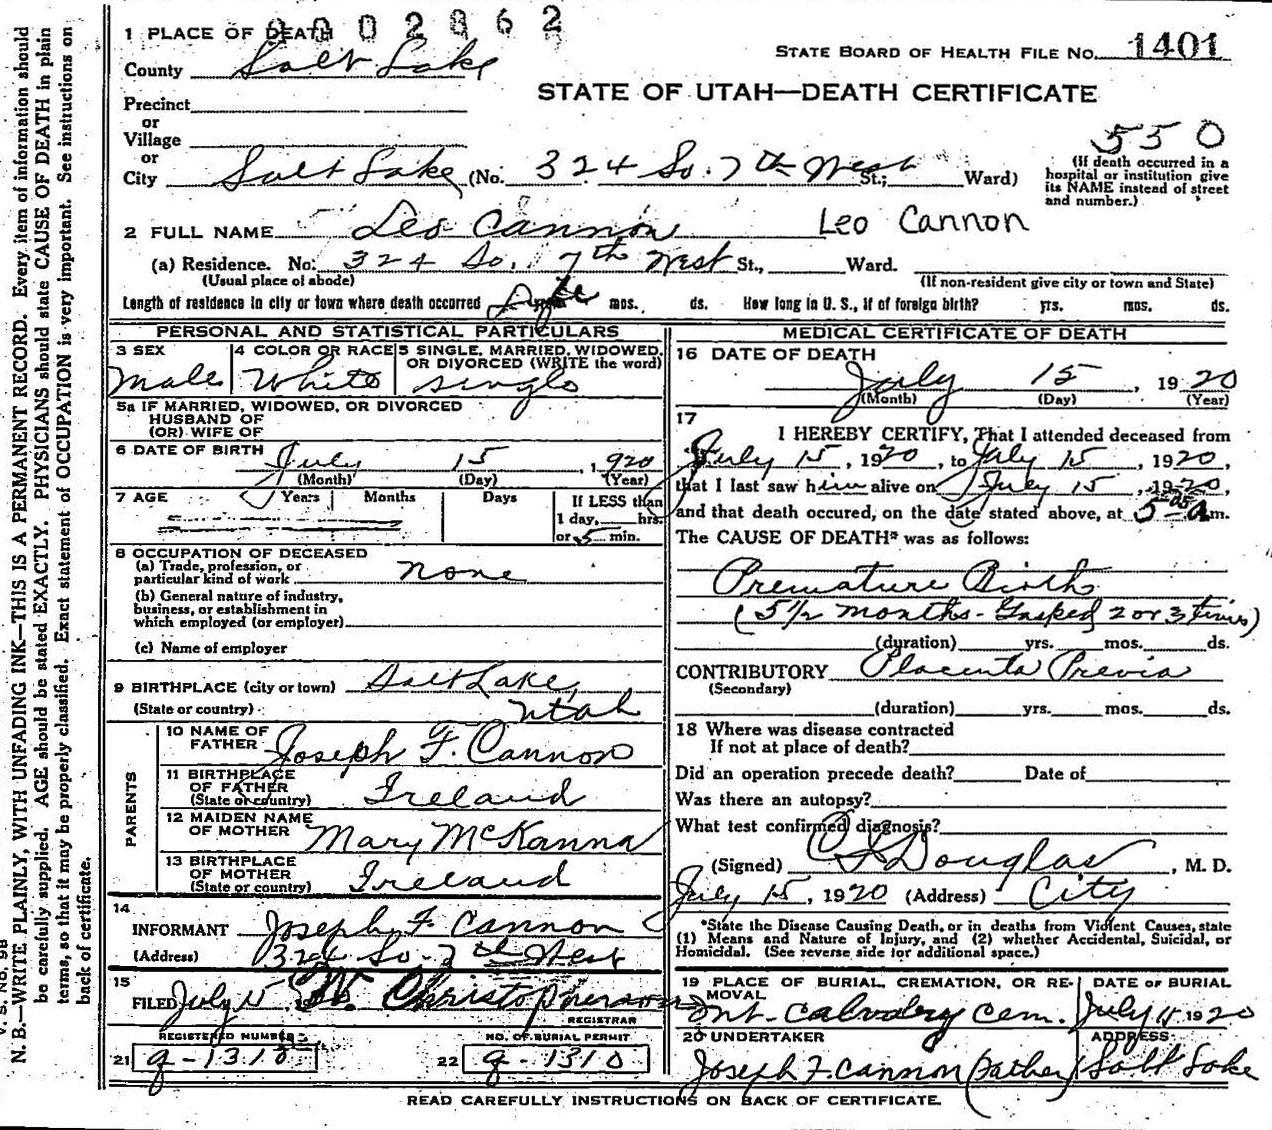 0002862
1 PLACE OF DEATH
STATE BOARD OF HEALTH FILE NO. 1401
County Salt Lake
STATE OF UTAH—DEATH CERTIFICATE
Precinct
or
Village
or
City Salt Lake (No. 324 So. 7th West St.; Ward)
550
(If death occurred in a
hospital or institution give
its NAME instead of street
and number.)
2 FULL NAME Leo Cannon Leo Cannon
(a) Residence. No. 324 So. 7th West St., Ward.
(Usual place of abode) (If non-resident give city or town and State)
Length of residence in city or town where death occurred Life mos. ds. How long in U. S., if of foreign birth? yrs. mos. ds.
PERSONAL AND STATISTICAL PARTICULARS
3 SEX
Male
4 COLOR OR RACE
White
5 SINGLE, MARRIED, WIDOWED,
OR DIVORCED (WRITE the word)
Single
5a IF MARRIED, WIDOWED, OR DIVORCED
HUSBAND OF
(OR) WIFE OF
6 DATE OF BIRTH July 15, 1920
(Month) (Day) (Year)
7 AGE Years Months Days
If LESS than
1 day, hrs.
or 5 min.
8 OCCUPATION OF DECEASED
(a) Trade, profession, or
particular kind of work none
(b) General nature of industry,
business, or establishment in
which employed (or employer)
(c) Name of employer
9 BIRTHPLACE (city or town) Salt Lake,
(State or country) Utah
PARENTS
10 NAME OF
FATHER Joseph F. Cannon
11 BIRTHPLACE
OF FATHER
(State or country) Ireland
12 MAIDEN NAME
OF MOTHER Mary McKanna
13 BIRTHPLACE
OF MOTHER
(State or country) Ireland
14
INFORMANT Joseph F. Cannon
(Address) 324 So. 7th West
15
FILED July 15, 19 W. Christopherson
REGISTRAR
REGISTERED NUMBER
21 g-1310
NO. OF BURIAL PERMIT
22 g-1310
MEDICAL CERTIFICATE OF DEATH
16 DATE OF DEATH
July 15, 1920
(Month) (Day) (Year)
17
I HEREBY CERTIFY, That I attended deceased from
July 15, 1920, to July 15, 1920,
that I last saw him alive on July 15, 1920,
and that death occured, on the date stated above, at 5-05 a m.
The CAUSE OF DEATH* was as follows:
Premature Birth
(5 1/2 months - Gasped 2 or 3 times)
(duration) yrs. mos. ds.
CONTRIBUTORY Placenta Previa
(Secondary)
(duration) yrs. mos. ds.
18 Where was disease contracted
If not at place of death?
Did an operation precede death? Date of
Was there an autopsy?
What test confirmed diagnosis?
(Signed) Douglas, M. D.
July 15, 1920 (Address) City
*State the Disease Causing Death, or in deaths from Violent Causes, state
(1) Means and Nature of Injury, and (2) whether Accidental, Suicidal, or
Homicidal. (See reverse side for additional space.)
19 PLACE OF BURIAL, CREMATION, OR RE-
MOVAL
Mt. Calvalry Cem.
DATE OF BURIAL
July 15 1920
20 UNDERTAKER
Joseph F. Cannon (Father)
ADDRESS
Salt Lake
READ CAREFULLY INSTRUCTIONS ON BACK OF CERTIFICATE.
V. S. No. 9B
N. B.—WRITE PLAINLY, WITH UNFADING INK—THIS IS A PERMANENT RECORD. Every item of information should
be carefully supplied. AGE should be stated EXACTLY. PHYSICIANS should state CAUSE OF DEATH in plain
terms, so that it may be properly classified. Exact statement of OCCUPATION is very important. See instructions on
back of certificate.